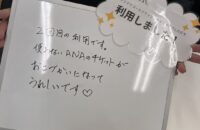 利用しました
2回目の利用です。
使わないANAのチケットが
おこづかいになって
うれしいです♡